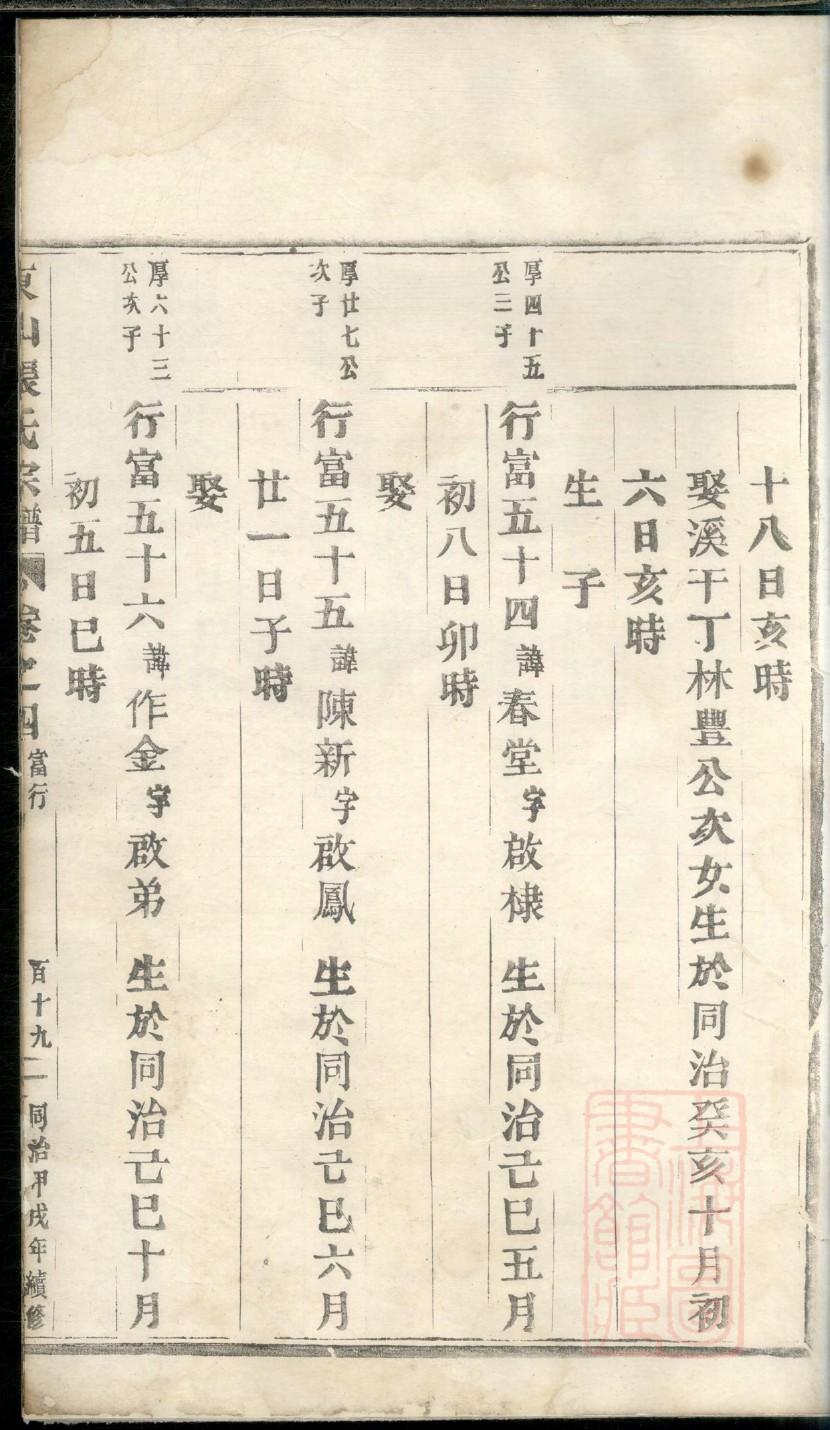 十八日亥時
娶溪干丁林豐公次女生於同治癸亥十月初
六日亥時
生　子
厚四十五
公三子
行富五十四諱春堂字啟棣　生於同治己巳五月
初八日卯時
娶
厚廿七公
次子
行富五十五諱陳新字啟鳳　生於同治己巳六月
廿一日子時
娶
厚六十三
公次子
行富五十六諱作金字啟弟　生於同治己巳十月
初五日巳時
東山張氏宗譜　卷之四　富行　百十九　同治甲戌年續修
上海圖
書館藏